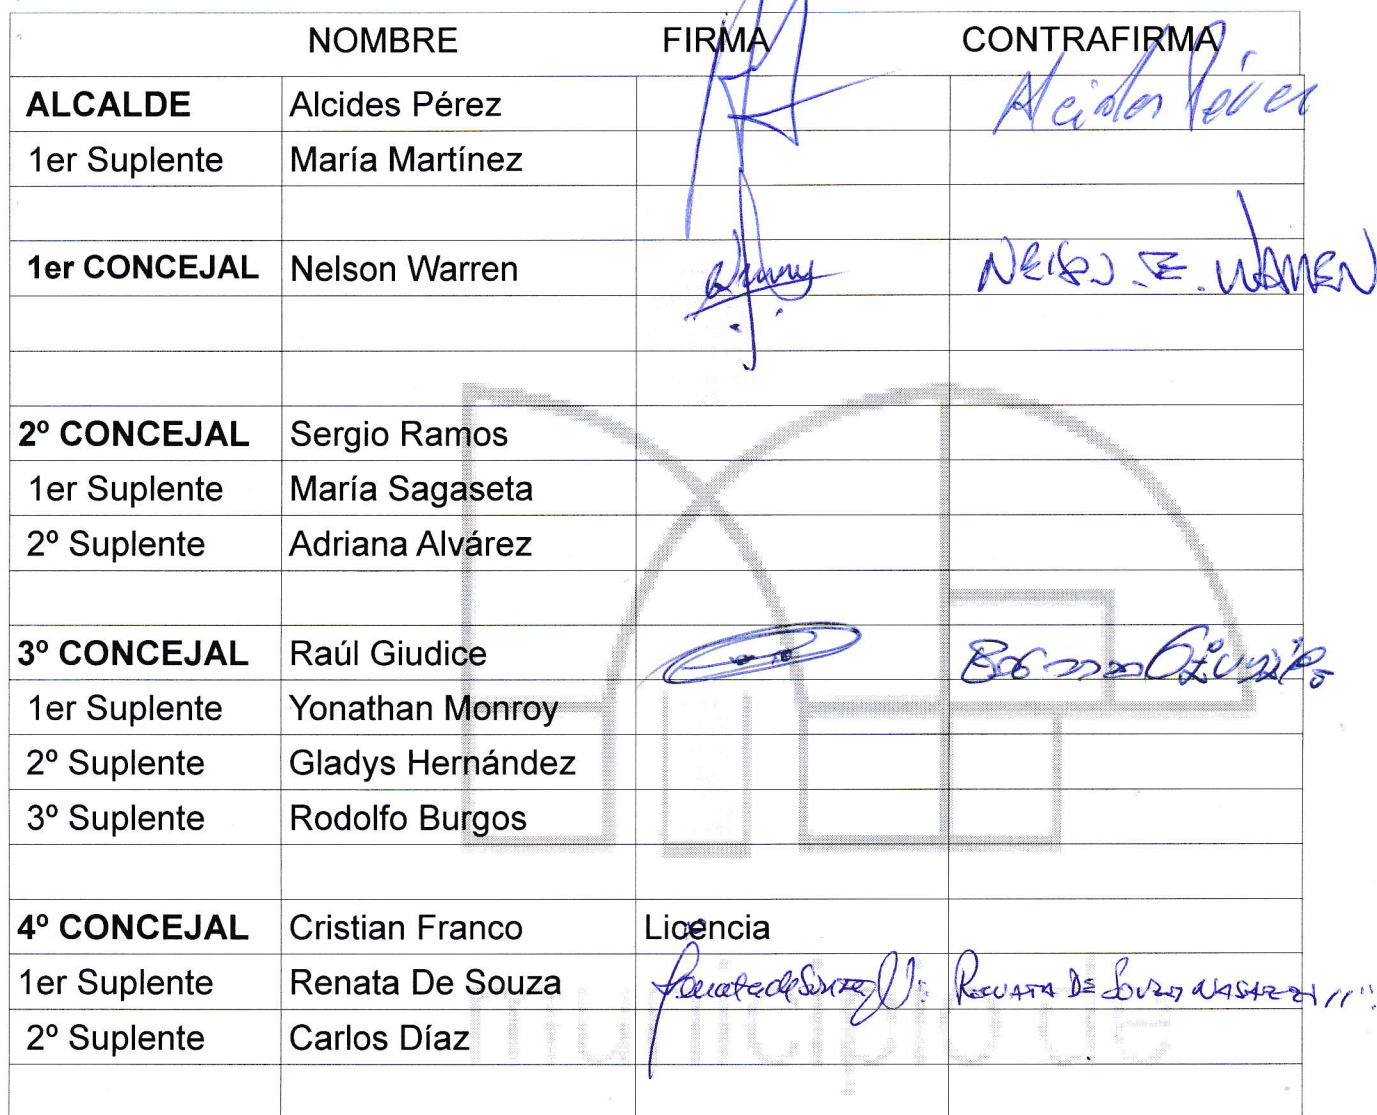 NOMBRE FIRMA CONTRAFIRMA
ALCALDE Alcides Pérez Alcides Pérez
1er Suplente María Martínez
1er CONCEJAL Nelson Warren Nelson E. WARREN
2º CONCEJAL Sergio Ramos
1er Suplente María Sagaseta
2º Suplente Adriana Alvárez
3º CONCEJAL Raúl Giudice
1er Suplente Yonathan Monroy
2º Suplente Gladys Hernández
3º Suplente Rodolfo Burgos
4º CONCEJAL Cristian Franco Licencia
1er Suplente Renata De Souza Renata de Souza RENATA DE SOUZA NASAZZI
2º Suplente Carlos Díaz
municipio de